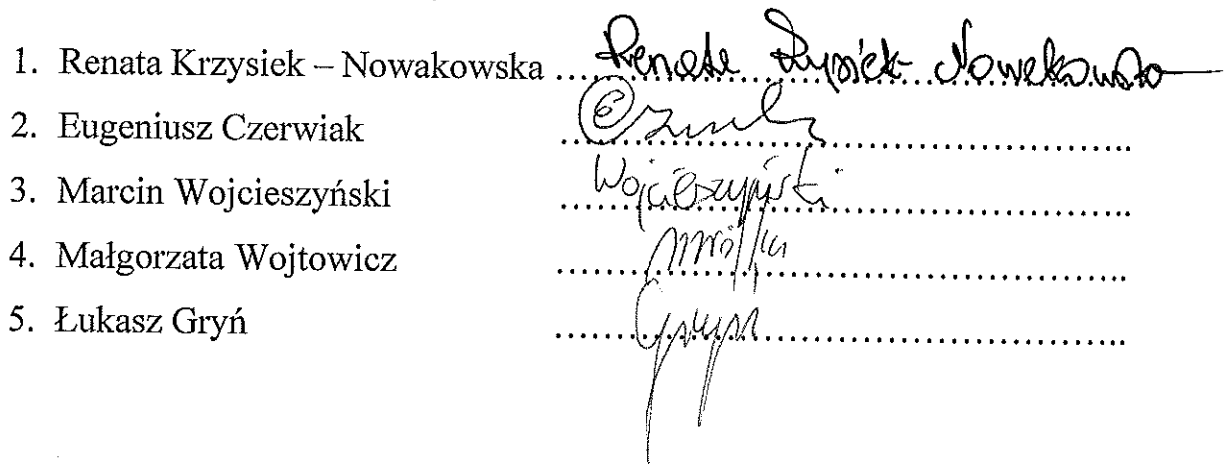 1. Renata Krzysiek – Nowakowska ..... Renata Krzysiek-Nowakowska
2. Eugeniusz Czerwiak ..........
3. Marcin Wojcieszyński .......... Wojcieszyński
4. Małgorzata Wojtowicz ..........
5. Łukasz Gryń .......... Gryń